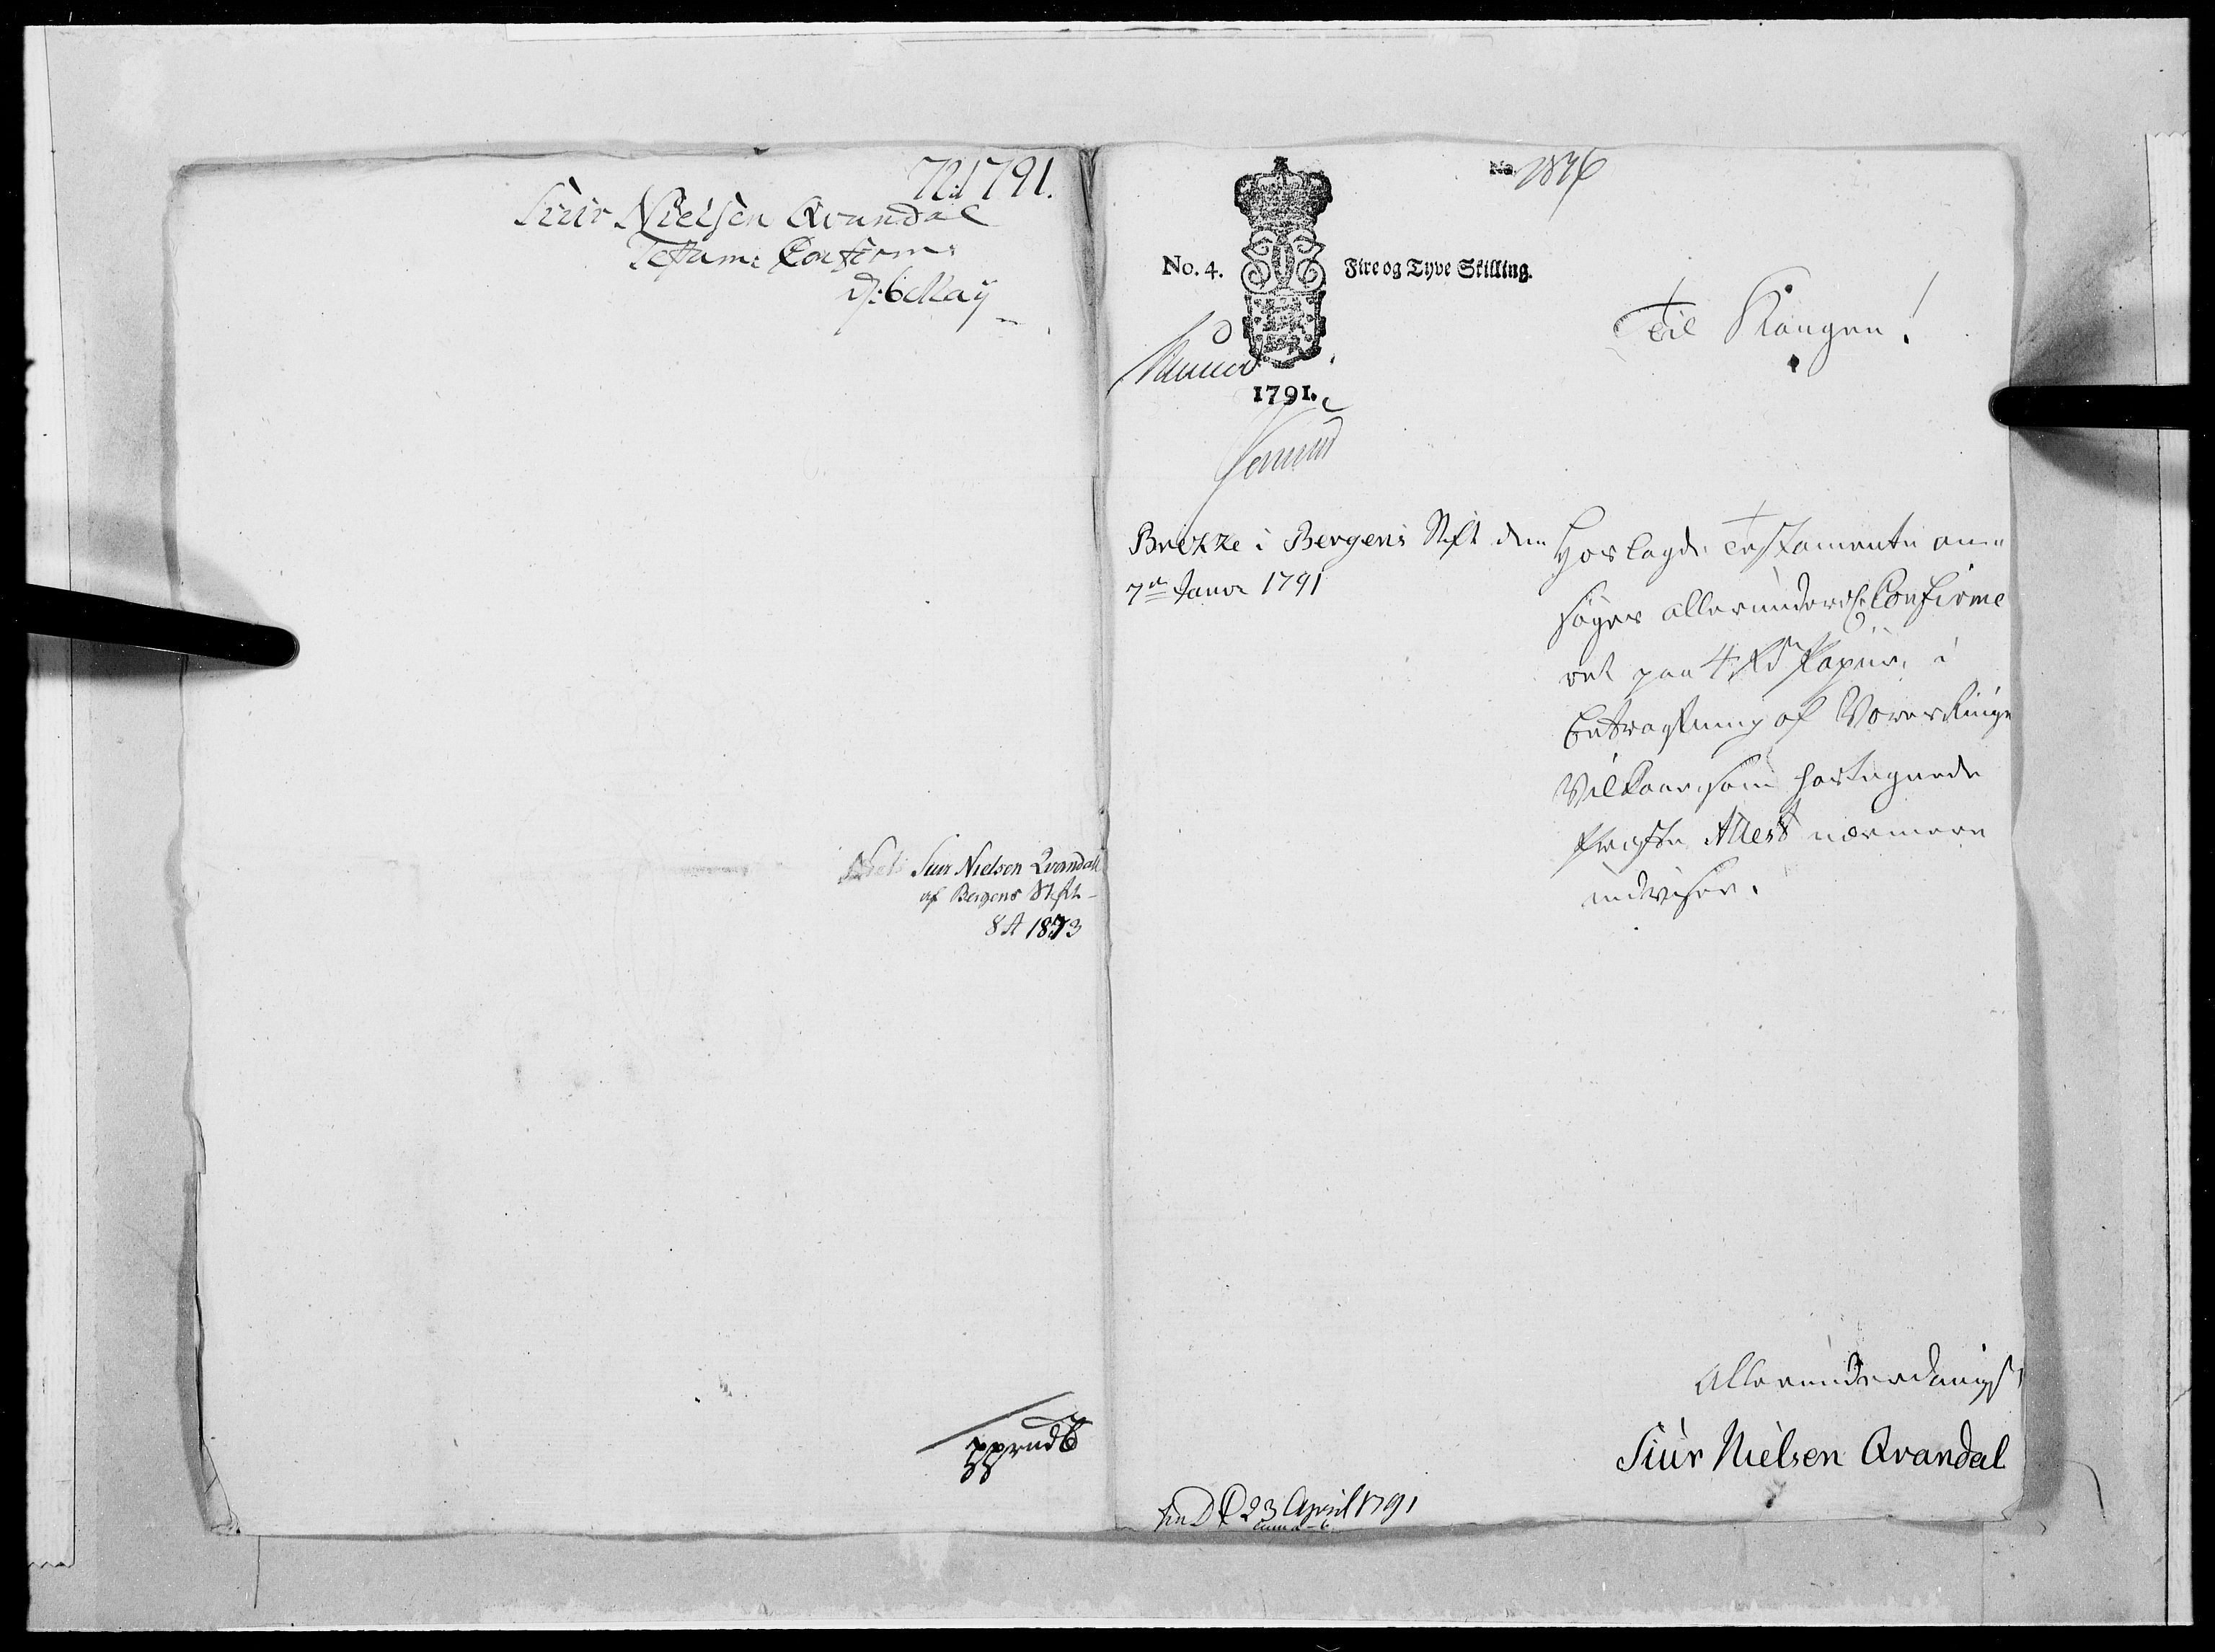 721791.
Siur Nielsen Qvandal
Testam: Confirm:
D: 6 May
Siur Nielsen Qvandall
af Bergens Stift
8 A 1873
No. 1876
No. 4. Fire og Tyve Skilling.
1791.
Til Kongen!
Brekke i Bergens Stift den
7de Janvr 1791
Hoslagde Testamente an„
søges allerunderd: Confirme
ret paa 4 Rd Papiir, i
Betragtning af Vores Ringe
Vilkaar, som hostegnede
Præste Attest nærmere
udviser.
Allerunderdanigst
Siur Nielsen Qvandal
Ind D 23 April 1791